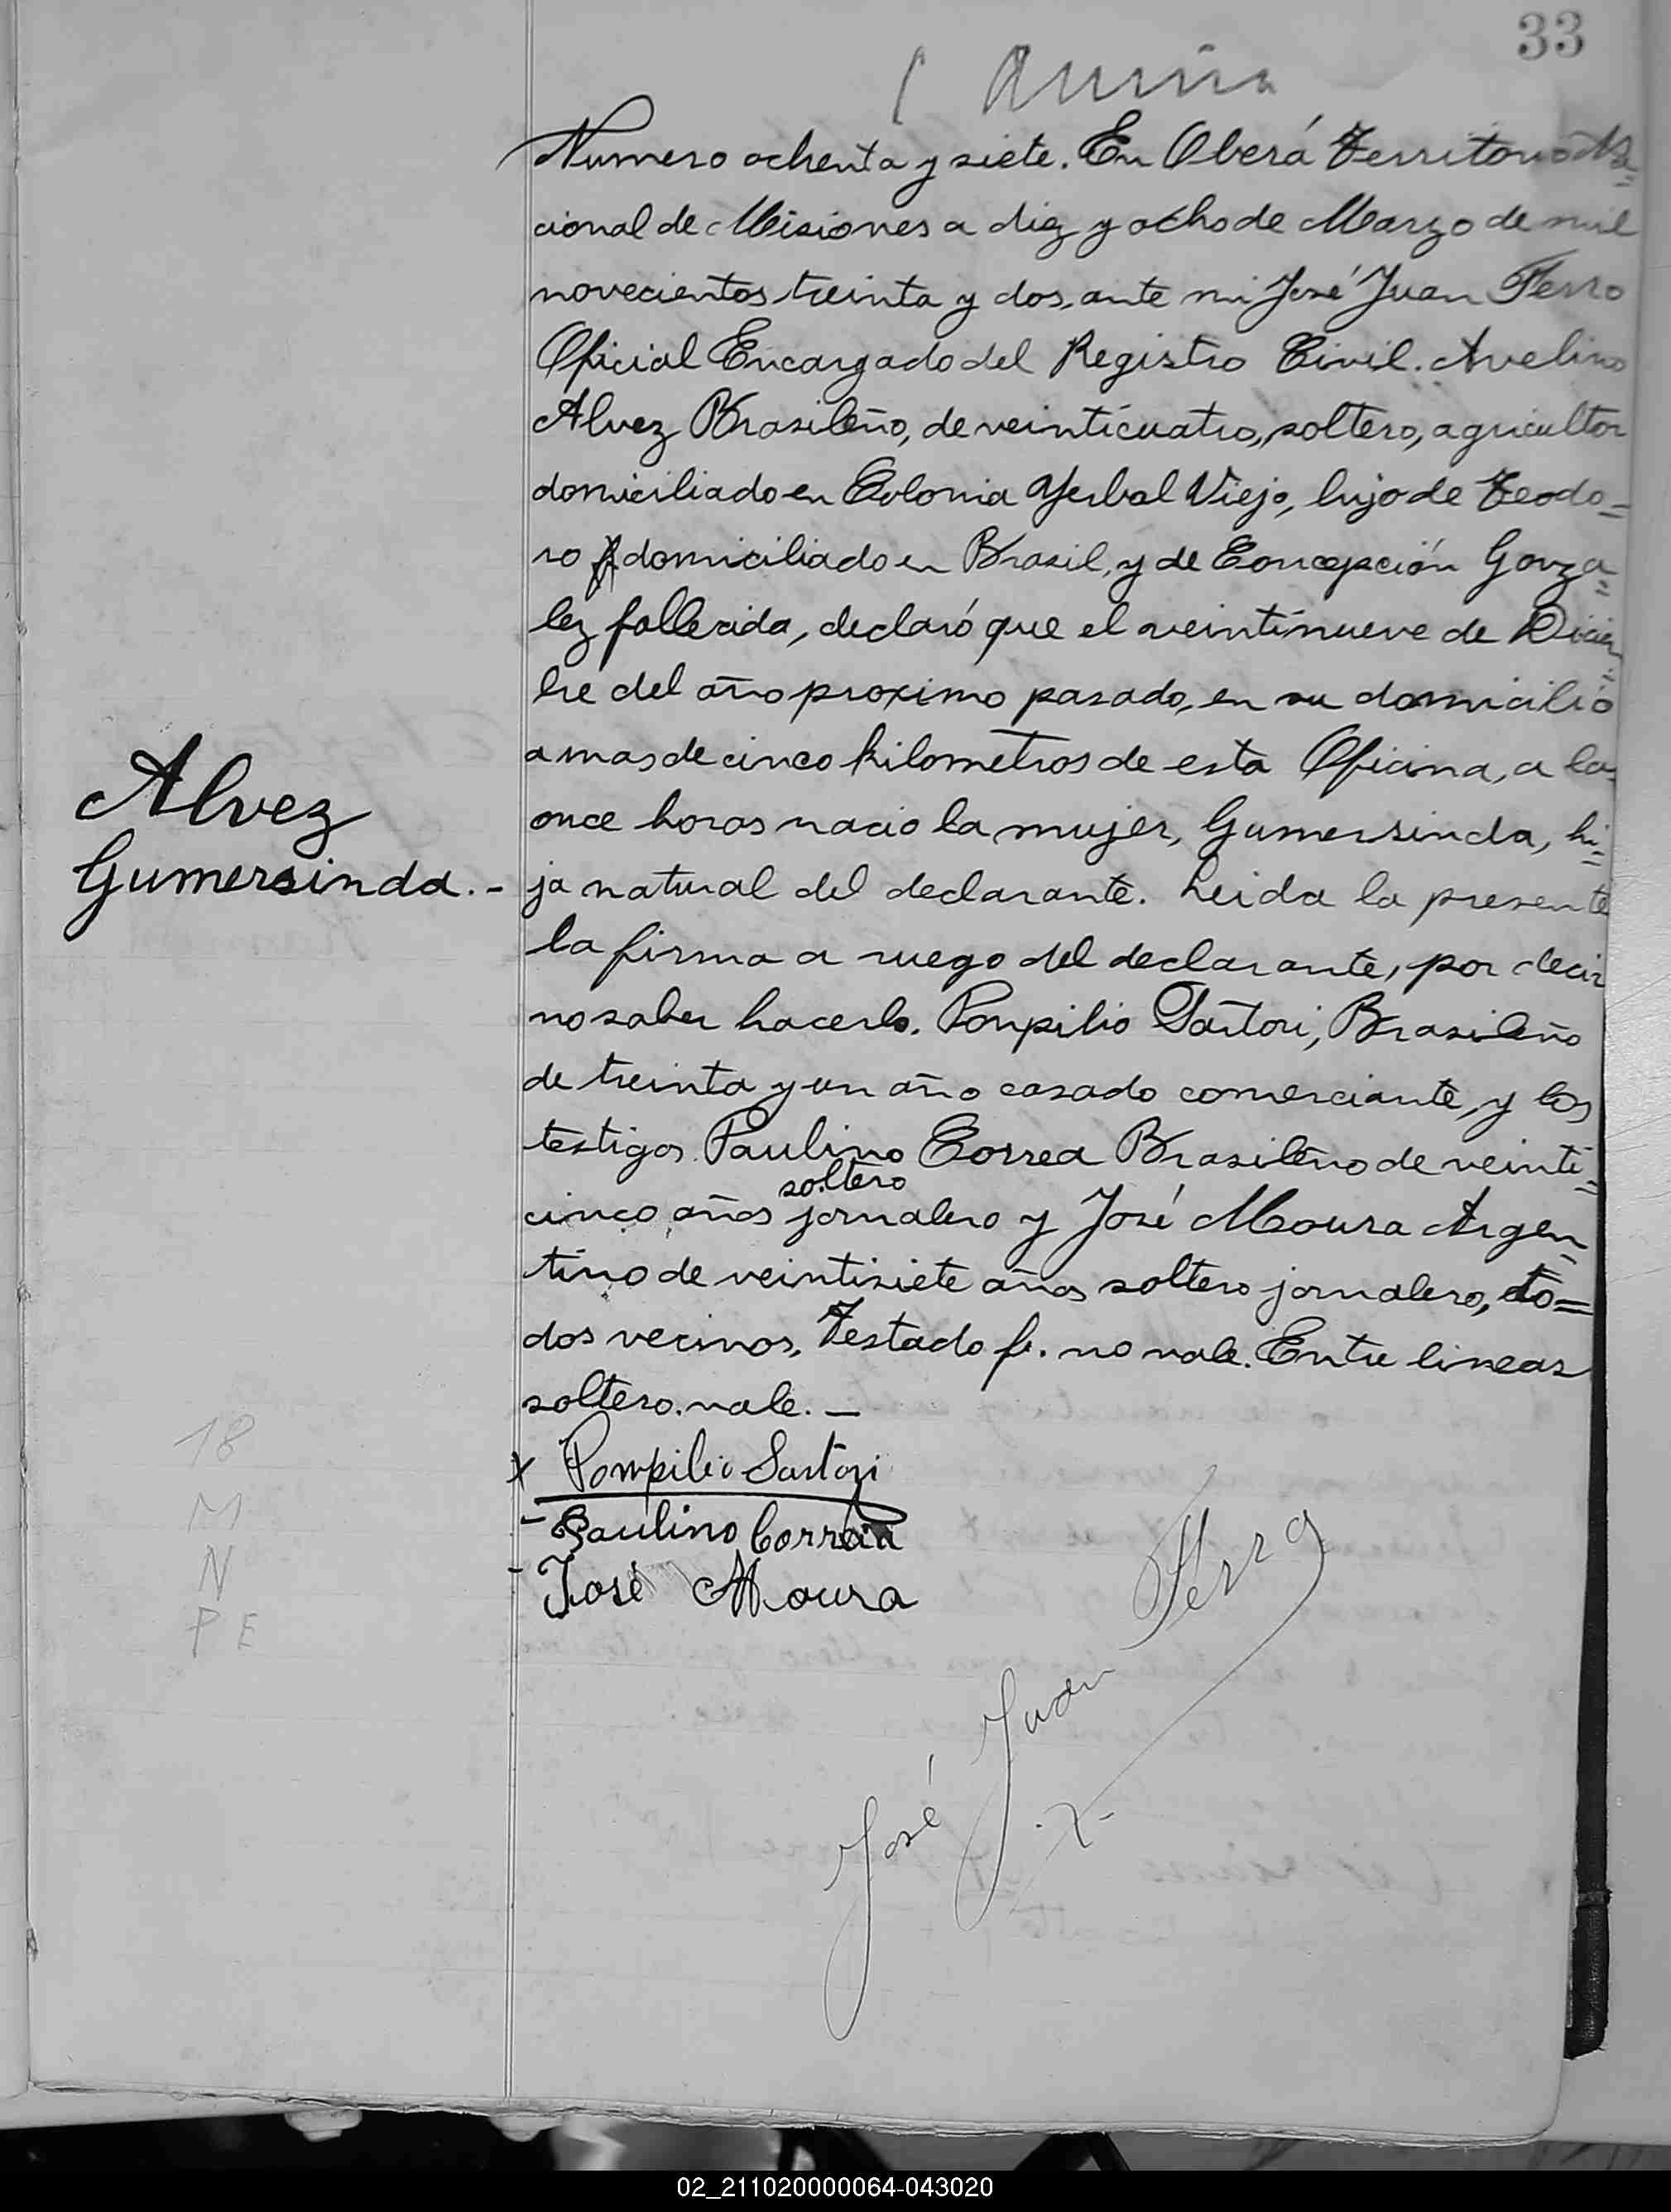 33
Numero ochenta y siete. En Oberá Territorio Na=
cional de Misiones a diez y ocho de Marzo de mil
novecientos treinta y dos, ante mi José Juan Ferro
Oficial Encargado del Registro Civil. Avelino
Alvez Brasileño, de veinticuatro, soltero, agricultor
domiciliado en Colonia Yerbal Viejo, hijo de Teodo=
ro domiciliado en Brasil, y de Concepción Gonza=
lez fallecida, declaró que el veintinueve de Diciem
bre del año proximo pasado, en su domicilio
a mas de cinco kilometros de esta Oficina, a las
once horas nacio la mujer, Gumersinda, hi=
ja natural del declarante. Leida la presente
la firma a ruego del declarante, por decir
no saber hacerlo. Pompilio Sartori, Brasileño
de treinta y un año casado comerciante, y los
testigos Paulino Correa Brasileño de veinti=
soltero
cinco años jornalero y José Moura Argen=
tino de veintisiete años soltero jornalero, to=
dos vecinos. Testado f. no vale. Entre lineas
soltero. vale. —
Alvez
Gumersinda.-
x Pompilio Sartori
- Paulino Correa
- José Moura
José Juan Ferro
18
M
N
P E
02_211020000064-043020